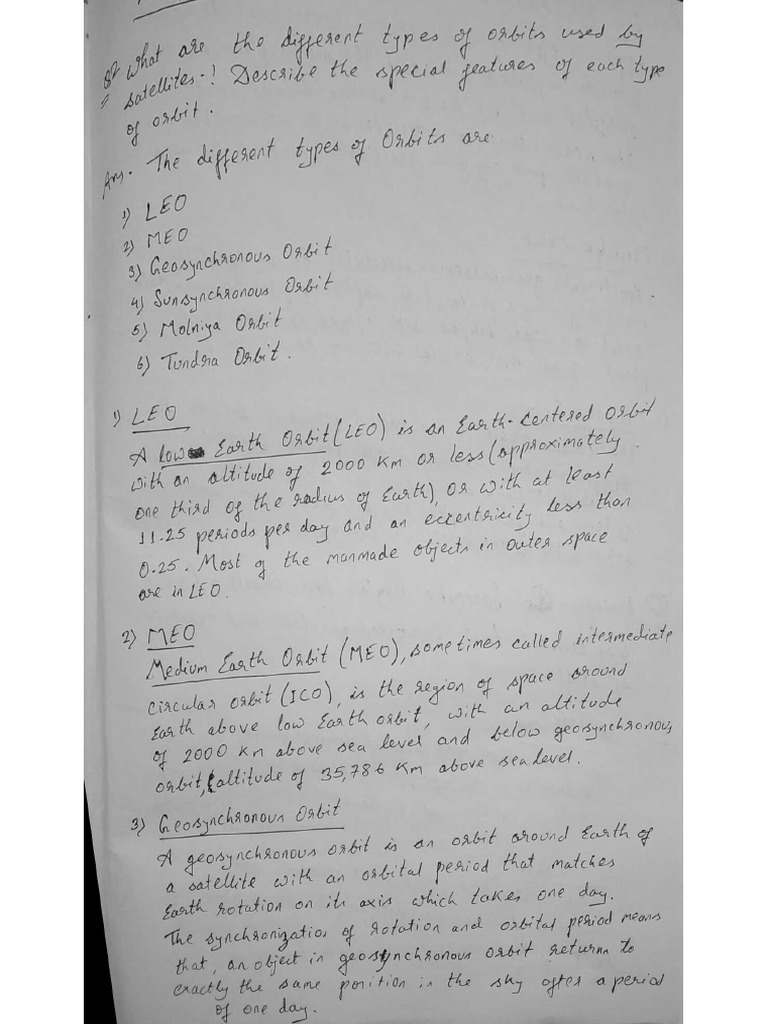 Q2 What are the different types of orbits used by
satellites-! Describe the special features of each type
of orbit.
Ans. The different types of Orbits are
1) LEO
2) MEO
3) Geosynchronous Orbit
4) Sunsynchronous Orbit
5) Molniya Orbit
6) Tundra Orbit.
1) LEO
A low Earth Orbit (LEO) is an Earth-centered orbit
with an altitude of 2000 Km or less (approximately
one third of the radius of Earth), or with at least
11.25 periods per day and an eccentricity less than
0.25. Most of the manmade objects in outer space
are in LEO.
2) MEO
Medium Earth Orbit (MEO), sometimes called intermediate
circular orbit (ICO), is the region of space around
Earth above low Earth orbit, with an altitude
of 2000 Km above sea level and below geosynchronous
orbit, (altitude of 35,786 Km above sea level.
3) Geosynchronous Orbit
A geosynchronous orbit is an orbit around Earth of
a satellite with an orbital period that matches
Earth rotation on its axis which takes one day.
The synchronization of rotation and orbital period means
that, an object in geosynchronous orbit returns to
exactly the same position in the sky after a period
of one day.